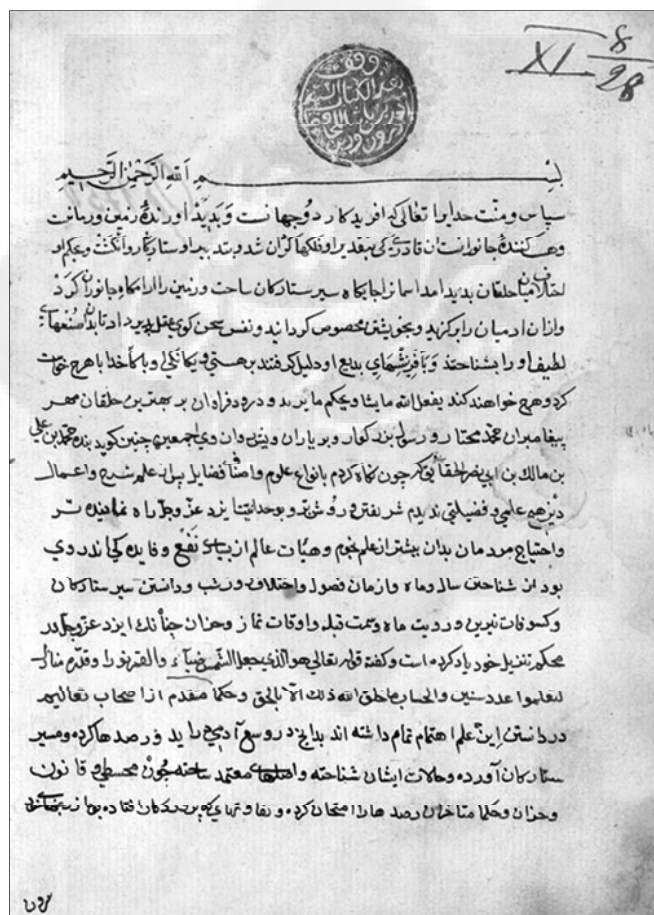 8
XI 28
وقف
بسم الله الرحمن الرحيم
سپاس و منت خدایرا تعالی که افریدکار دو جهانست و بدید اورندهٔ زمین و زمانست
وهست کنندهٔ جانورانست ان قادری کی بتقدیر او فلکها کران شد و بتدبیر او ستارکان روان کشت و بحکم او
اختلاف میان خلقان بدید امد اسمانرا جایکاه سیر ستارکان ساخت و زمین را ارامکاه جانوران کرد
و از ان ادمیان را برکزید و بخویشتن مخصوص کردانید و نفس سخن کوی عقل بذیر داد تا بدان صنعهای
لطیف او را بشناختند و بافرینشهای بدیع او دلیل کرفتند بر هستی و یکانکی او باکا خدایا هرچ خواست
کرد و هرچ خواهد کند یفعل الله ما یشا و یحکم ما یرید و درود فراوان بر بهترین خلقان مهتر
پیغامبران محمد مختار و رسول بزرکوار و بر یاران و اجمعین چنین کوید بنده محمد بن علی
بن مالک بن ابی نصر الحقایقی کی چون نکاه کردم بانواع علوم و اصناف فضایل پس از علم شرع و اعمال
دین هیچ علمی و فضیلتی ندیدم شریفتر و روشنتر و بوحدانیت ایزد عز و جل راه نماینده تر
و احتیاج مردمان بدان بیشتر از علم نجوم و هیات عالم از بسیاری نفع و فایده کی اندروی
بود از شناختن سال و ماه و ازمان فصول و اختلاف روز و شب و دانستن سیر ستارکان
و کسوفات نیرین و رویت ماه و سمت قبله و اوقات نماز و جزان چنانک ایزد عز و جل در
محکم تنزیل خود یاد کرده است و کفته قوله تعالی هو الذی جعل الشمس ضیآء والقمر نورا وقدره منازل
لتعلموا عدد السنین والحساب ما خلق الله ذلک الا بالحق و حکما مقدم از اصحاب تعالیم
در دانستن این علم اهتمام تمام داشته اند بدانچ در وسع آدمی اید و رصدها کرده و مسیر
ستارکان آورده و حالات ایشان شناخته و اصلهای معتمد ساخته چون مجسطی و قانون
و جزان و حکما متاخران رصدها را امتحان کرده و تفاوتهای که بزرکان افتاده بود از